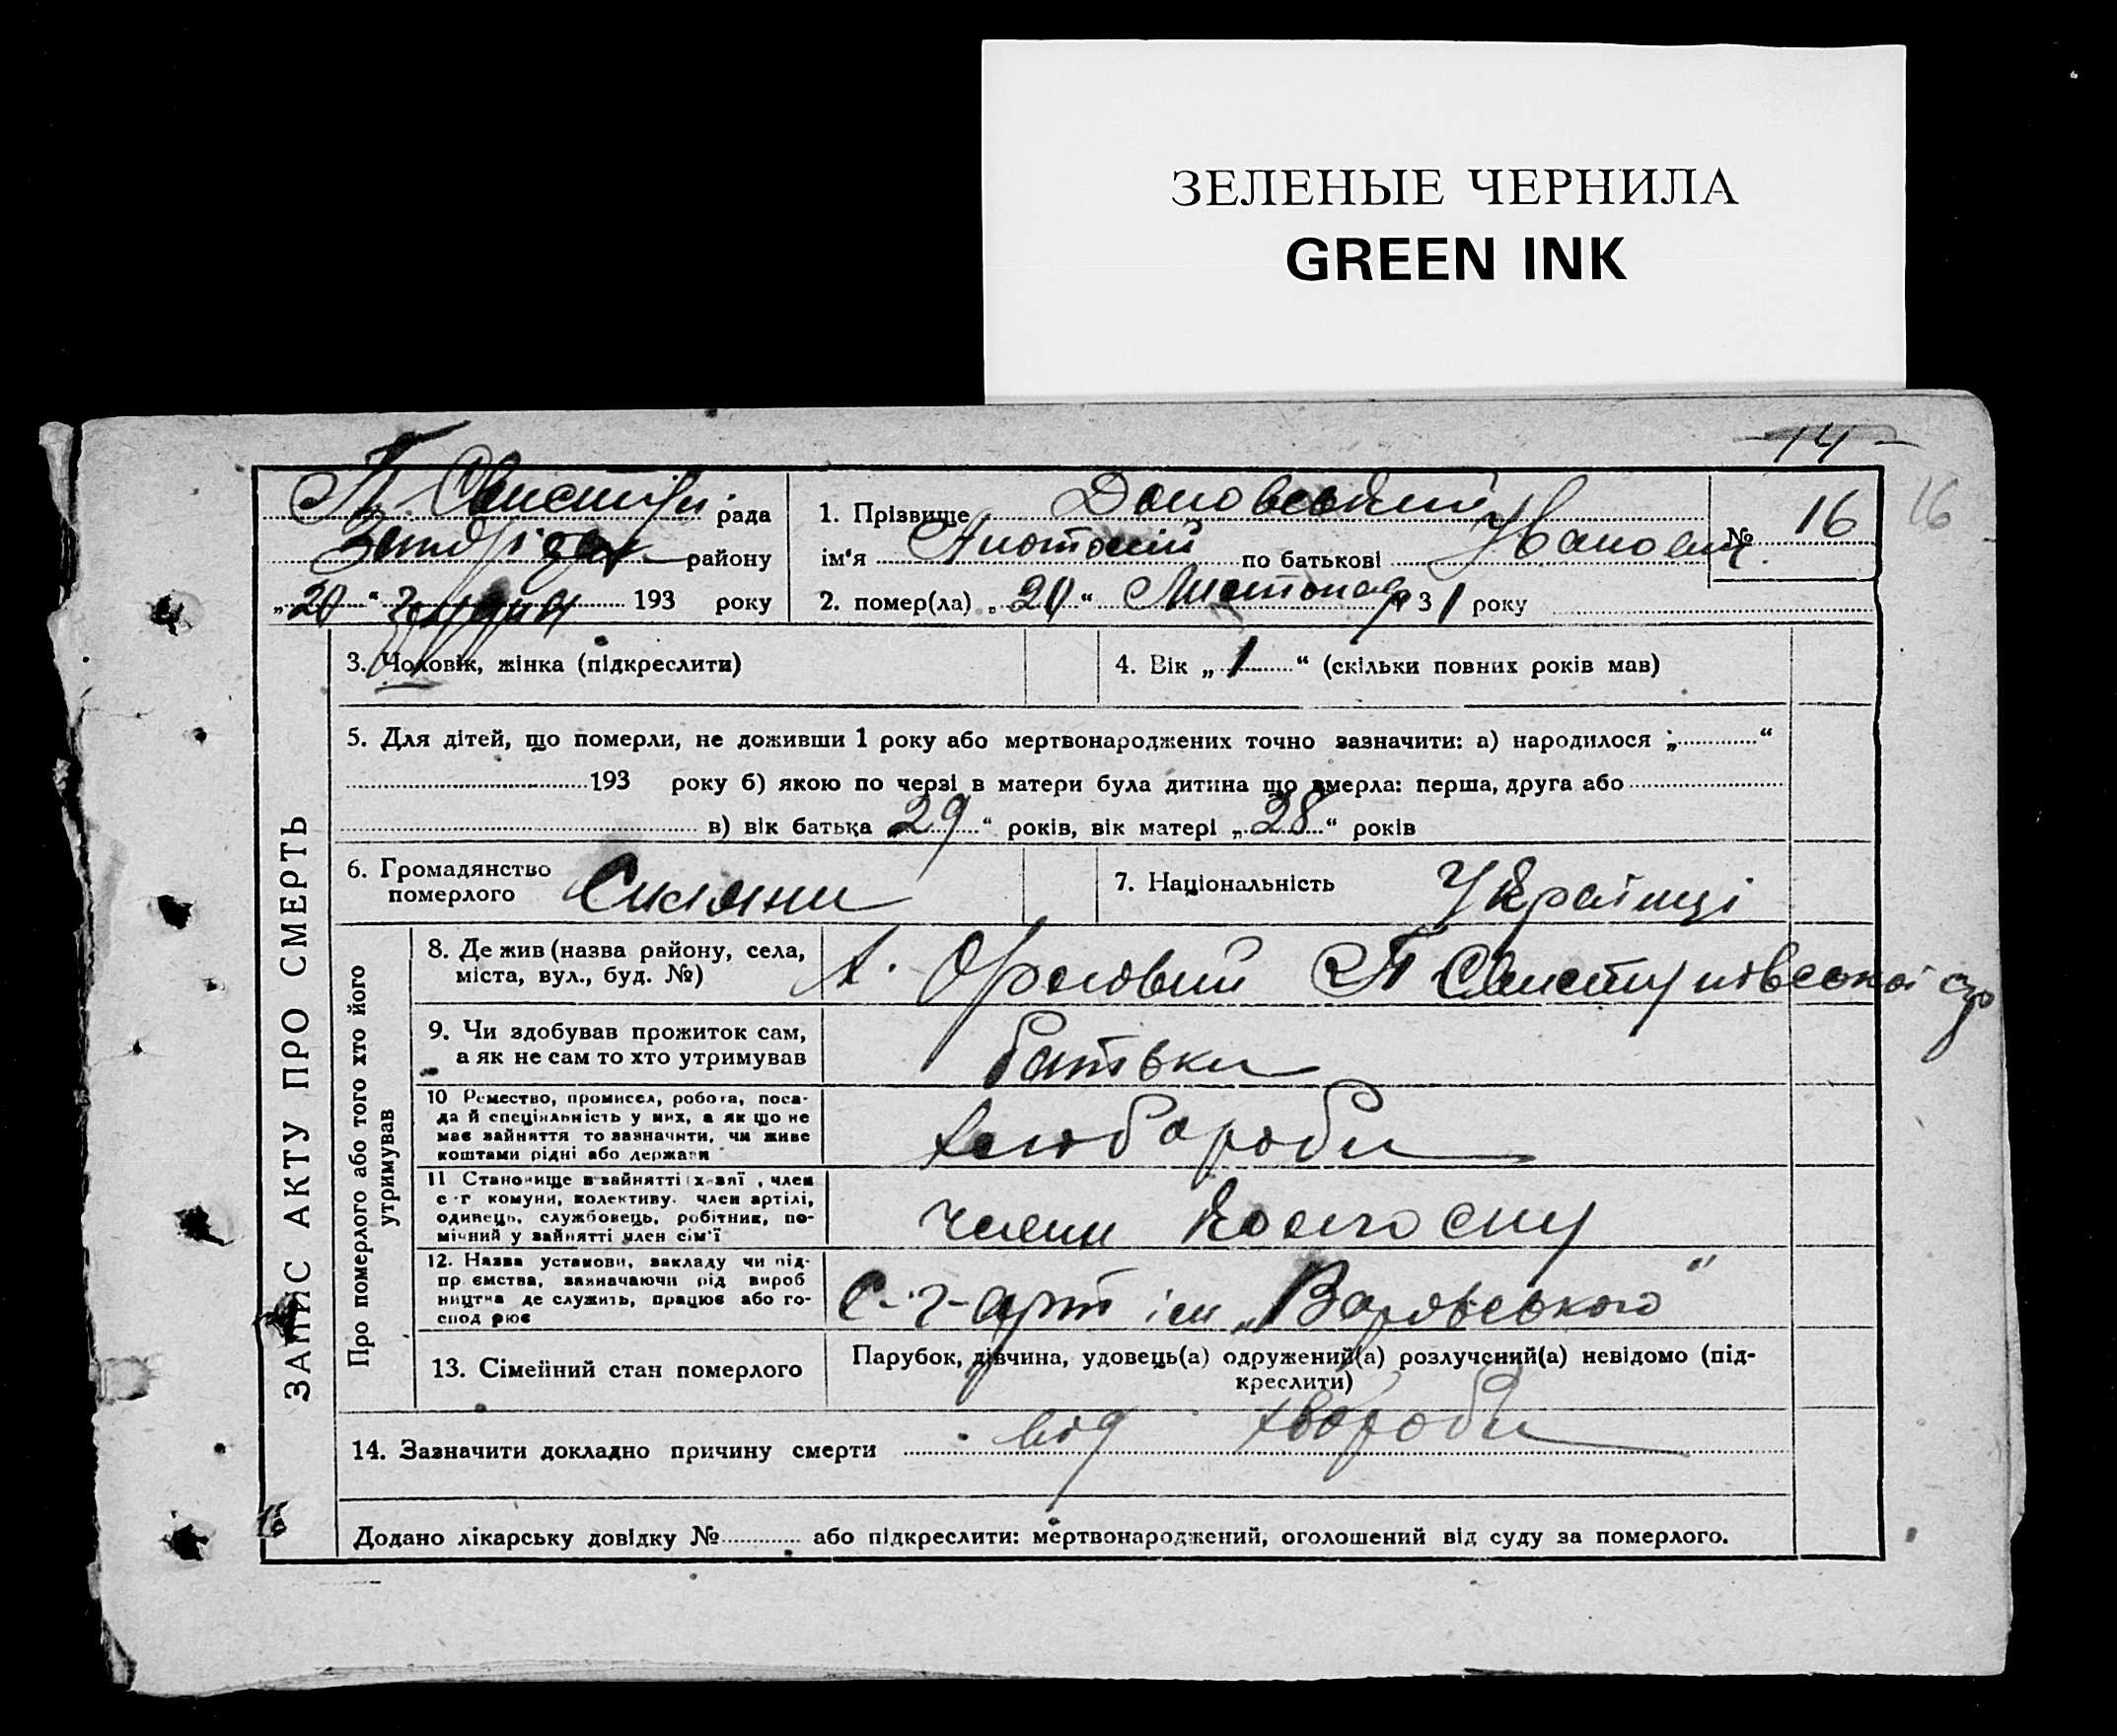 ЗЕЛЕНЫЕ ЧЕРНИЛА
GREEN INK
14
16
П. Свистун. рада
району
„20“ грудня 193 року
1. Прізвище
ім'я Анотолій по батькові Іванович
2. помер(ла) „20“ Листопад 31 року
№ 16
ЗАПИС АКТУ ПРО СМЕРТЬ
3. Чоловік, жінка (підкреслити)
4. Вік „1“ (скільки повних років мав)
5. Для дітей, що померли, не доживши 1 року або мертвонароджених точно зазначити: а) народилося „ “
193 року б) якою по черзі в матери була дитина що вмерла: перша, друга або
в) вік батька „29“ років, вік матері „28“ років
6. Громадянство померлого Селяни
7. Національність Українці
Про померлого або того хто його утримував
8. Де жив (назва району, села,
міста, вул., буд. №)
П Свистунівської с/р
9. Чи здобував прожиток сам,
а як не сам то хто утримував
батьки
10 Ремество, промисел, робота, поса-
да й спеціяльність у них, а як що не
має зайняття то зазначити, чи живе
коштами рідні або держави
хлібороби
11 Становище в зайнятті , член
с-г комуни, колективу. член артілі,
одинець, службовець, робітник, по-
мічний у зайнятті член сім'ї
члени колгоспу
12. Назва установи, закладу чи під-
приємства, зазначаючи рід вироб
ництва де служить, працює або го-
сподарює
С-г-арт ім
13. Сімейний стан померлого
Парубок, дівчина, удовець(а) одружений(а) розлучений(а) невідомо (під-
креслити)
14. Зазначити докладно причину смерти від хвороби
16
Додано лікарську довідку № або підкреслити: мертвонароджений, оголошений від суду за померлого.